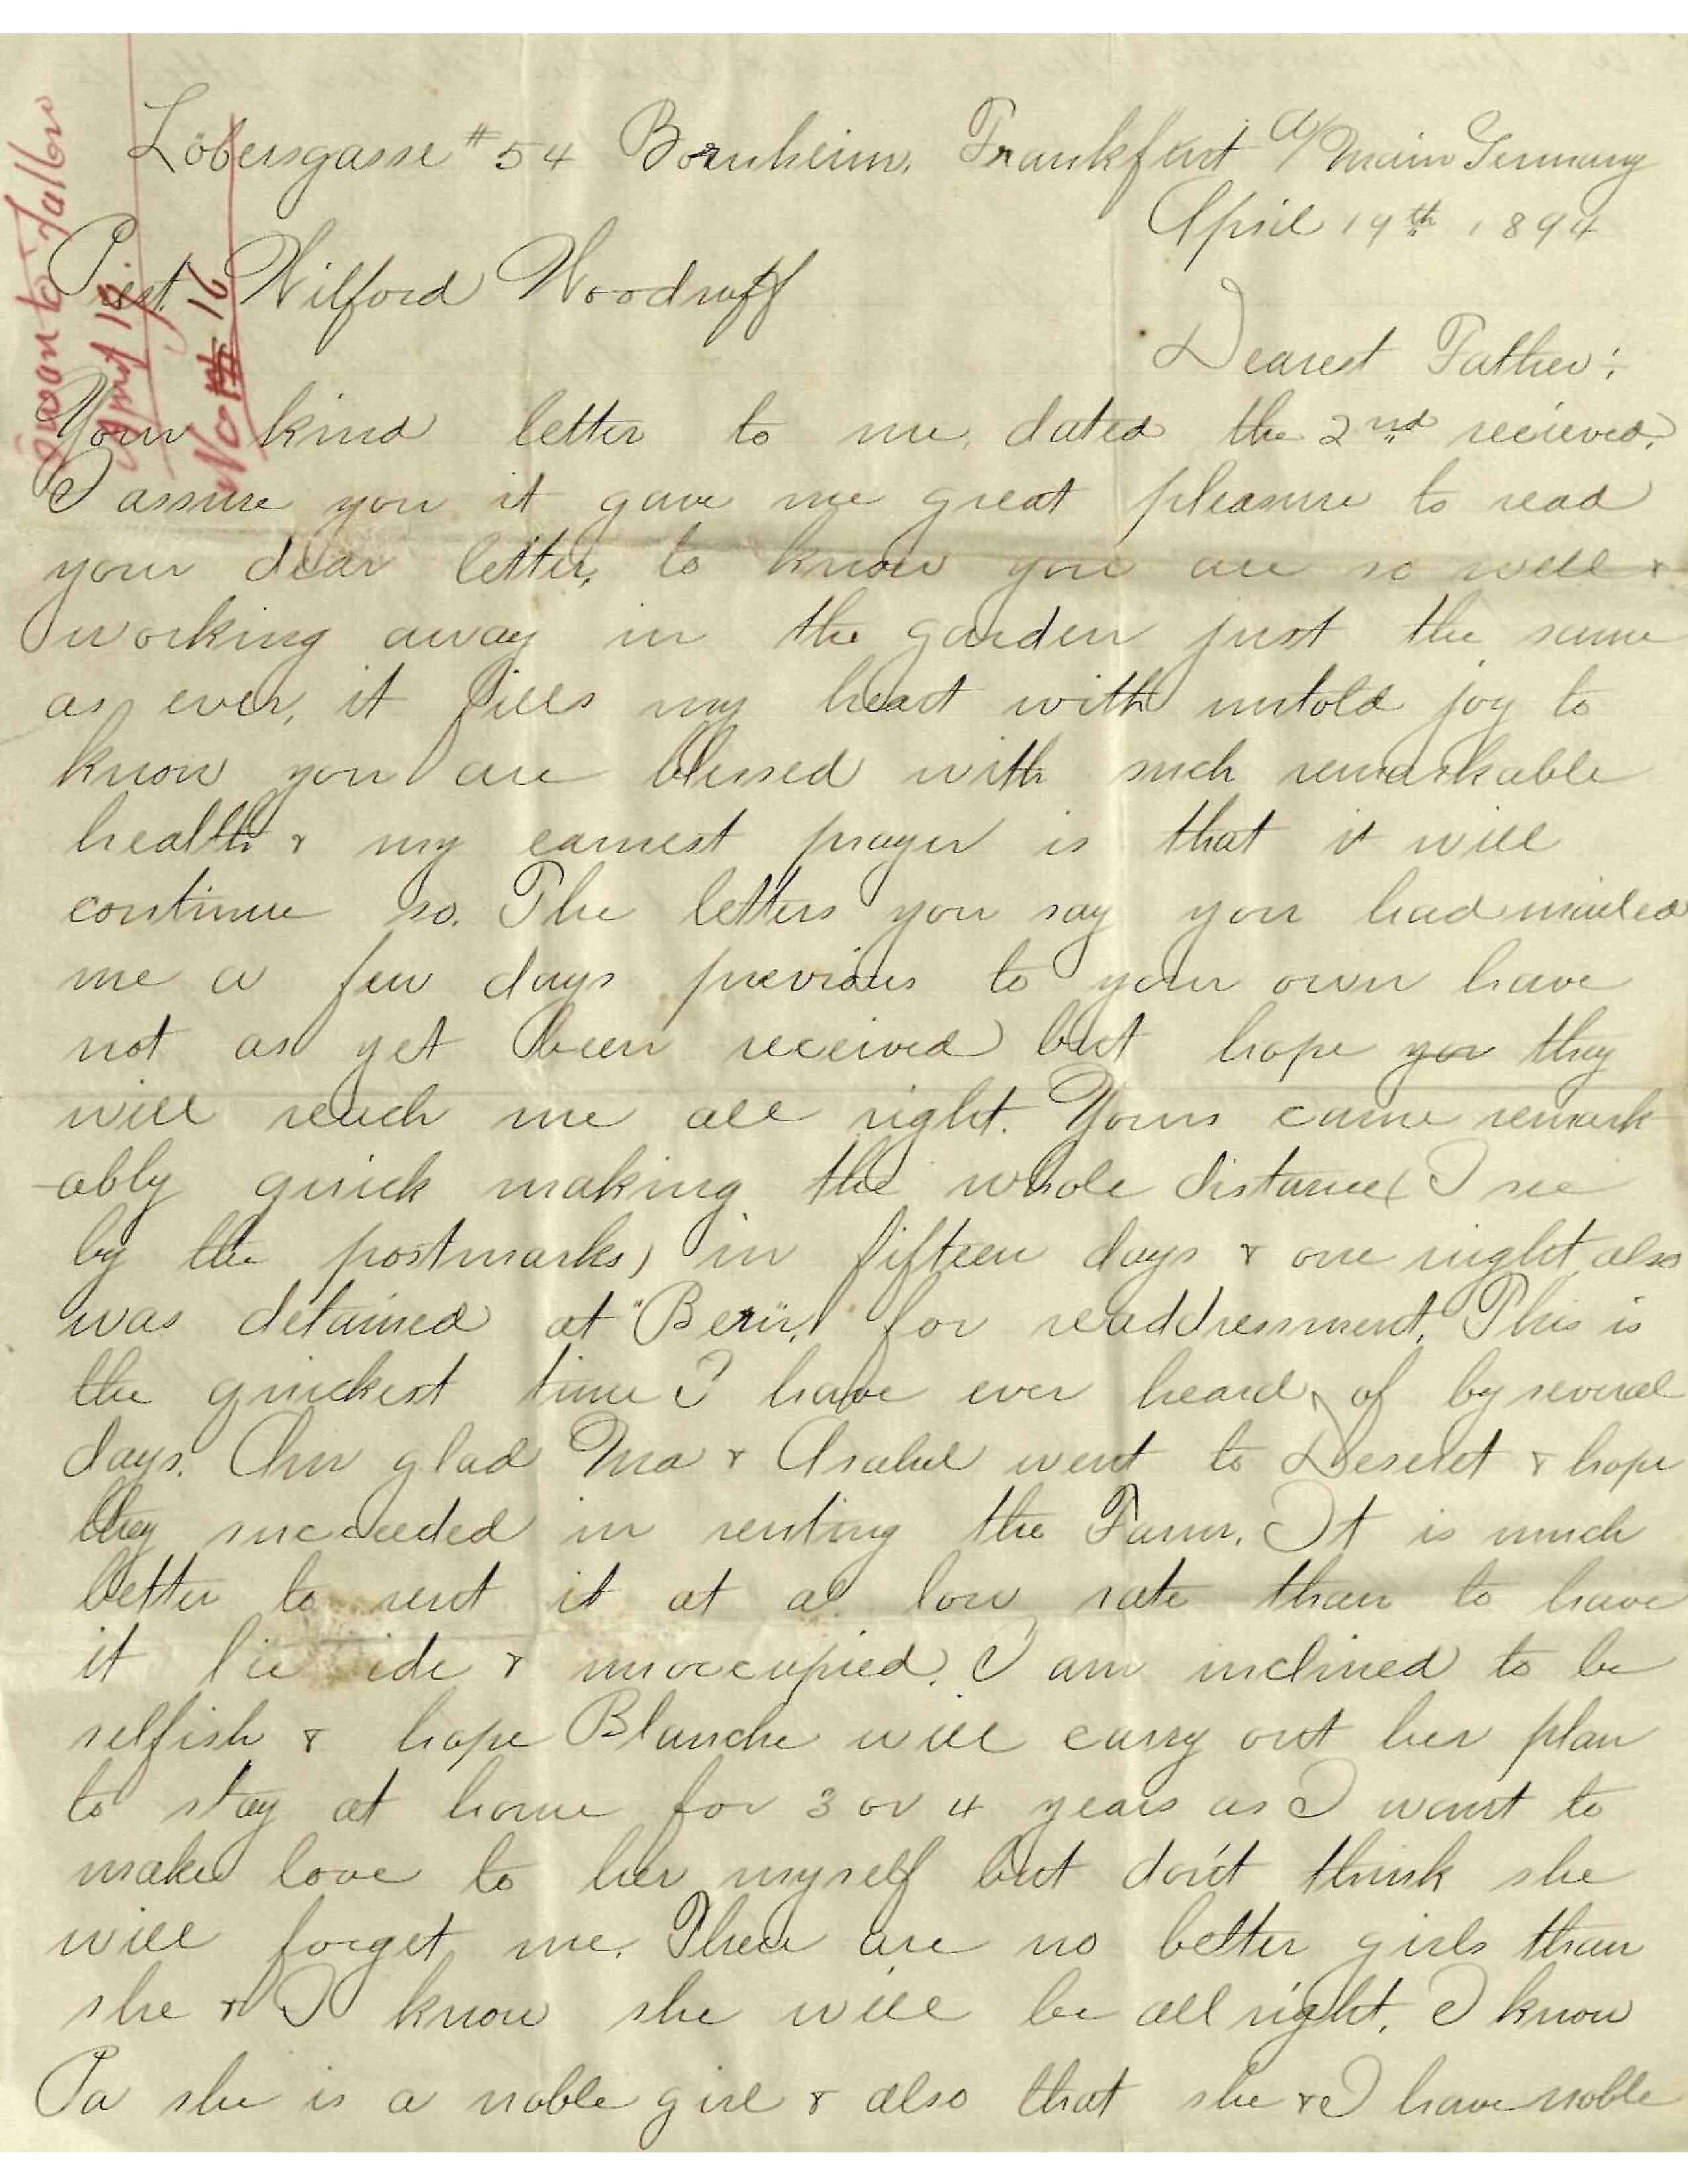 Löbersgasse #54 Bornheim, Frankfurt a/Main Germany
April 19th 1894
Prest. Wilford Woodruff
Dearest Father:
Your kind letter to me, dated the 2nd recieved.
I assure you it gave me great pleasure to read
your dear letter, to know you are so well &
working away in the garden just the same
as ever, it fills my heart with untold joy to
know you are blessed with such remarkable
health & my earnest prayer is that it will
continue so. The letters you say you had mailed
me a few days previous to your own have
not as yet been received but hope you they
will reach me all right. Yours came remark
-ably quick making the whole distance (I see
by the postmarks) in fifteen days & one night also
was detained at "Bern" for readdressment. This is
the quickest time I have ever heard of by several
days. Am glad Ma & Asahel went to Deseret & hope
they succeeded in renting the Farm. It is much
better to rent it at a low rate than to have
it lie idle & unoccupied. I am inclined to be
selfish & hope Blanche will carry out her plan
to stay at home for 3 or 4 years as I want to
make love to her myself but don't think she
will forget me. There are no better girls than
she & I know she will be all right. I know
Pa she is a noble girl & also that she & I have noble
Owen to Father
No 16